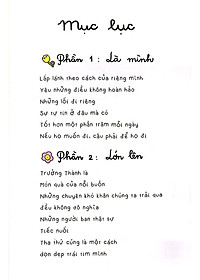 Mục lục
Phần 1: Là mình
Lấp lánh theo cách của riêng mình
Yêu những điều không hoàn hảo
Những lối đi riêng
Sự tự tin ở đâu mà có
Tốt hơn một phần trăm mỗi ngày
Nếu họ muốn đi, cậu phải để họ đi
Phần 2: Lớn lên
Trưởng Thành là
Món quà của nỗi buồn
Những chuyện khó khăn chúng ta trải qua
đều không vô nghĩa
Những người bạn thật sự
Tiếc nuối
Tha thứ cũng là một cách
dọn dẹp trái tim mình